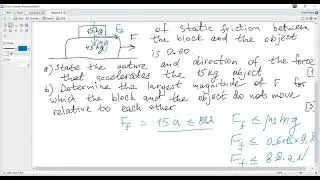 15kg
45kg
F
F_f
of static friction between
the block and the object
is 0.60.
a) State the nature and direction of the force
that accelerates the 15kg object
b) Determine the largest magnitude of F for
which the block and the object do not move
relative to each other
F_f = 15a ≤
F_f ≤ μs mg
F_f ≤
F_f ≤